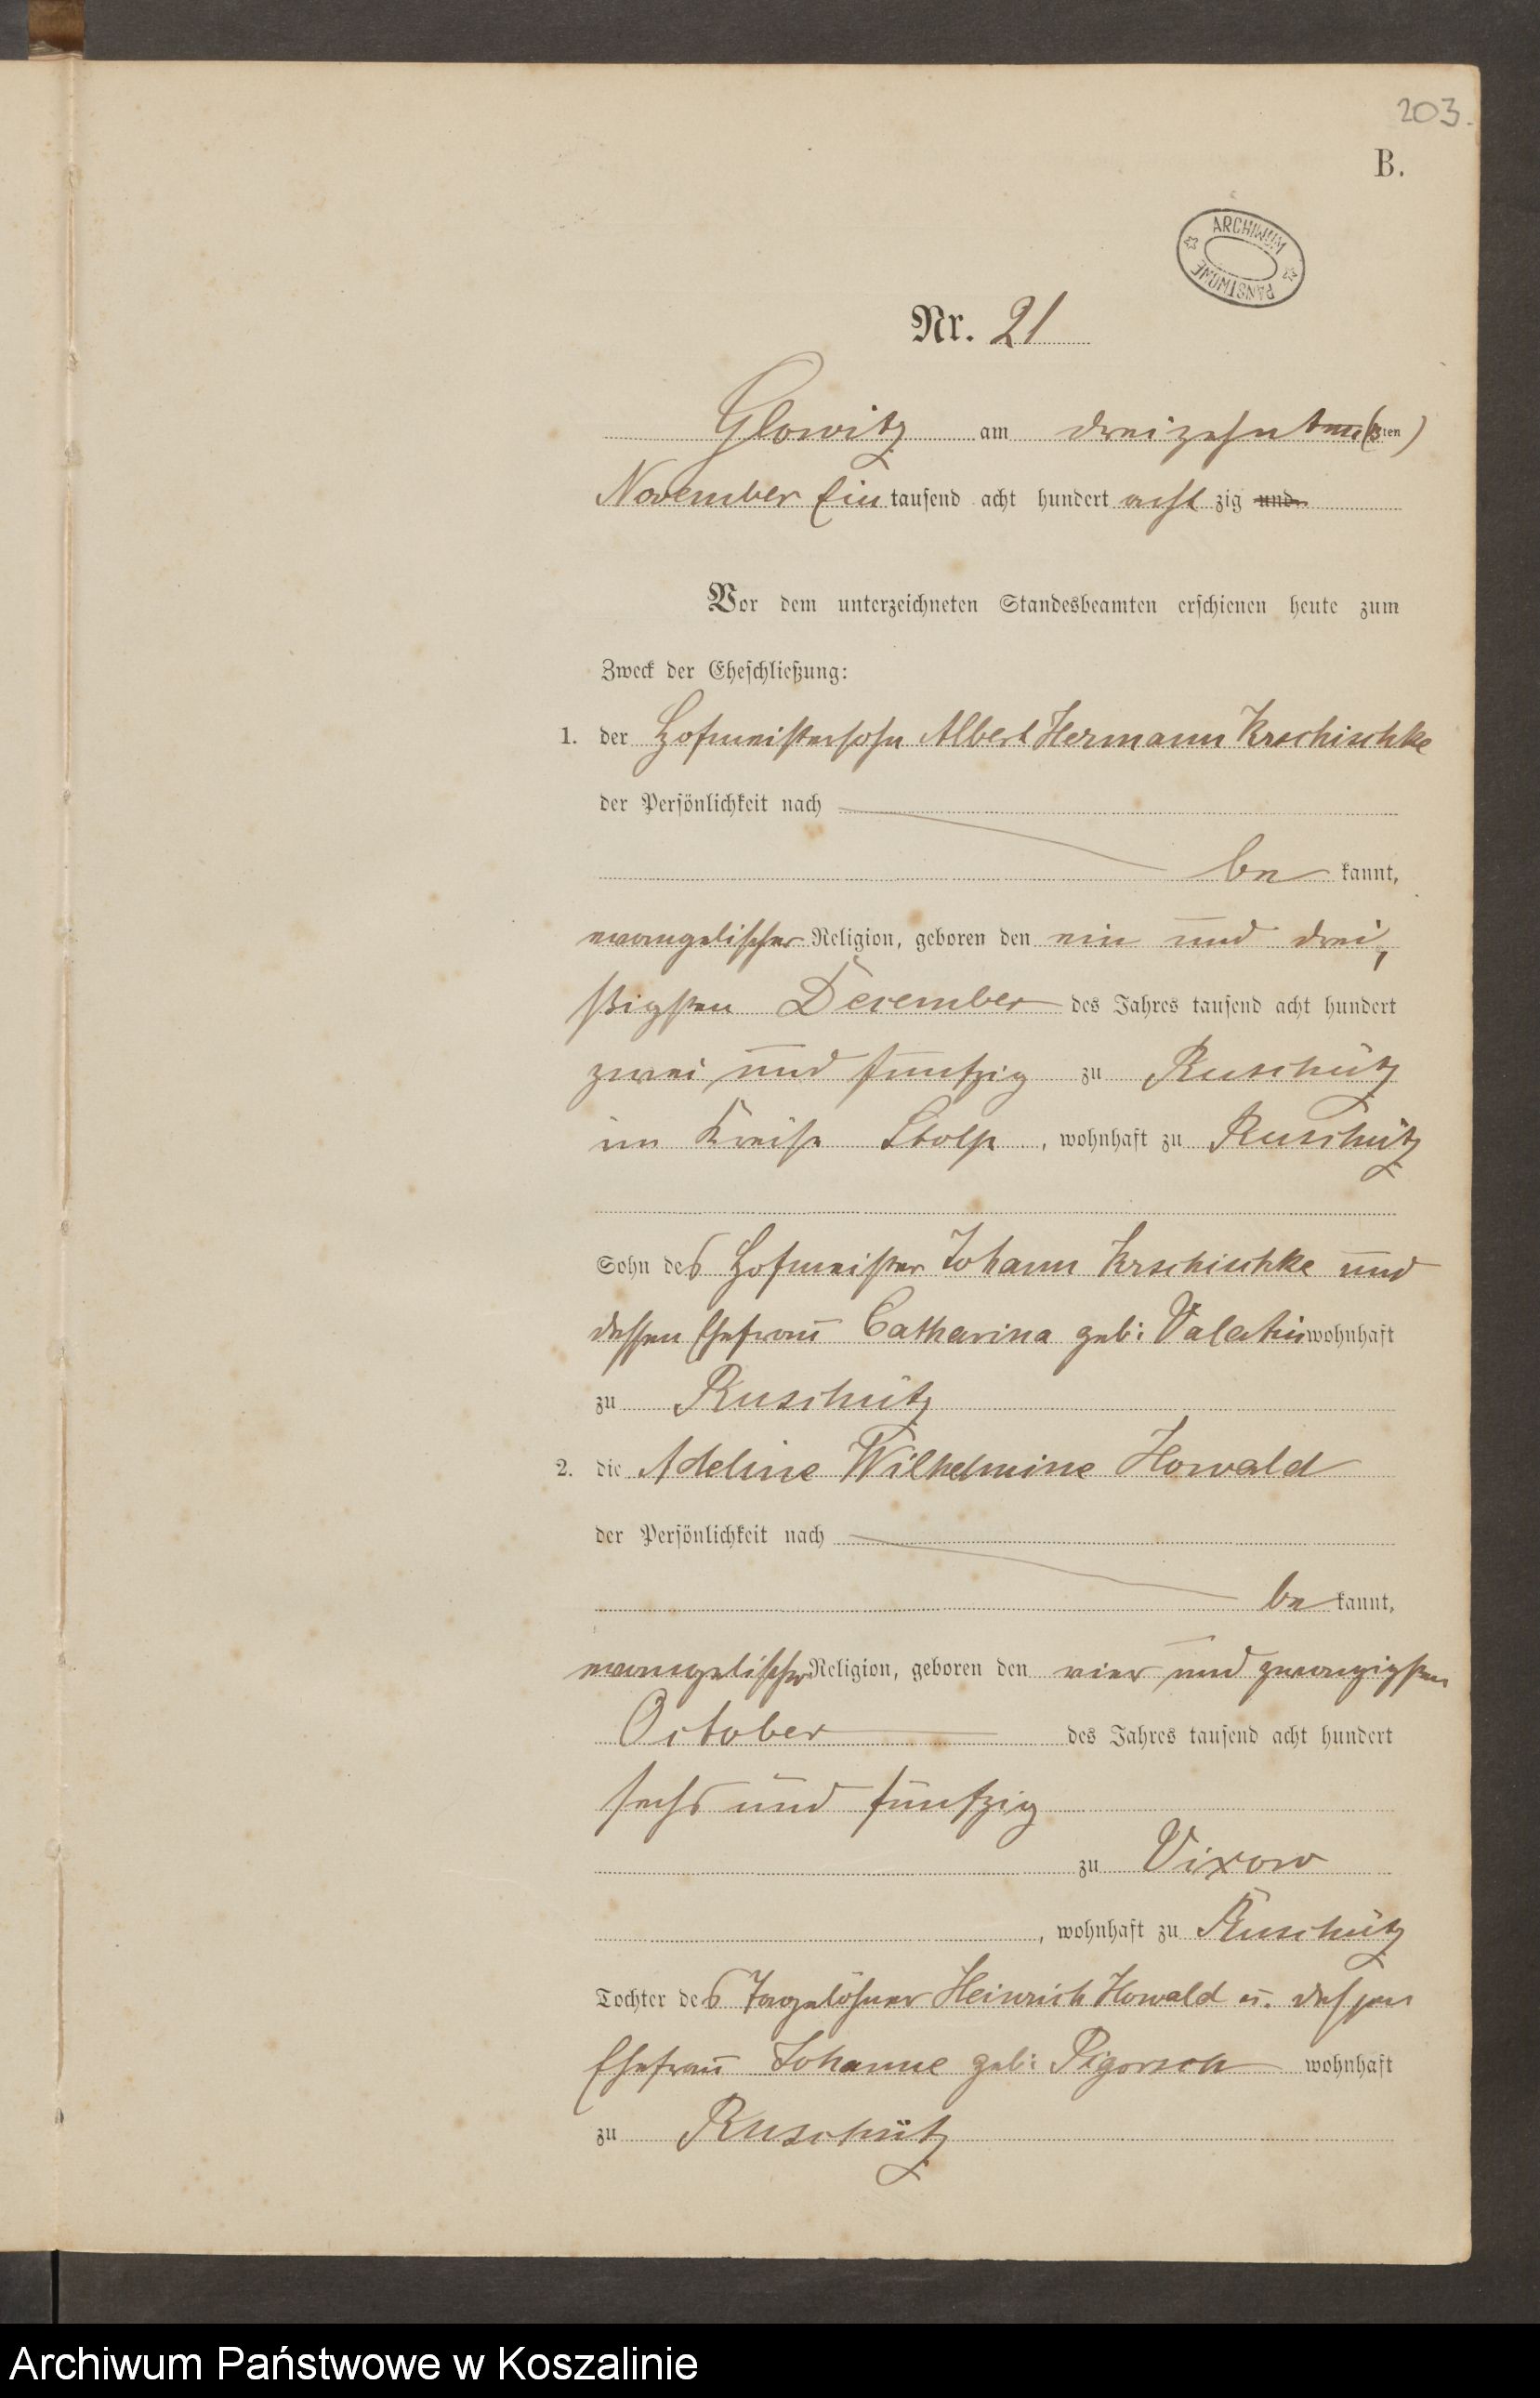 203.
B.
ARCHIWUM
PAŃSTWOWE
Nr. 21
Glowitz am dreizehnten (13ten)
November Ein tausend acht hundert acht zig und
Vor dem unterzeichneten Standesbeamten erschienen heute zum
Zweck der Eheschließung:
1. der Hofmeistersohn Albert Hermann Krschischke
der Persönlichkeit nach
be kannt,
evangelischer Religion, geboren den ein und drei,
ßigsten December des Jahres tausend acht hundert
zwei und fünfzig zu Ruschütz
im Kreise Stolp, wohnhaft zu Ruschütz
Sohn des Hofmeister Johann Krschischke und
dessen Ehefrau Catharina geb: wohnhaft
zu Ruschütz
2. die Adeline Wilhelmine Howald
der Persönlichkeit nach
be kannt,
evangelischer Religion, geboren den vier und zwanzigsten
October des Jahres tausend acht hundert
sechs und fünfzig
zu Vixow
, wohnhaft zu Ruschütz
Tochter des Tagelöhner Heinrich Howald u. dessen
Ehefrau Johanne geb: Pigorsch wohnhaft
zu Ruschütz
Archiwum Państwowe w Koszalinie